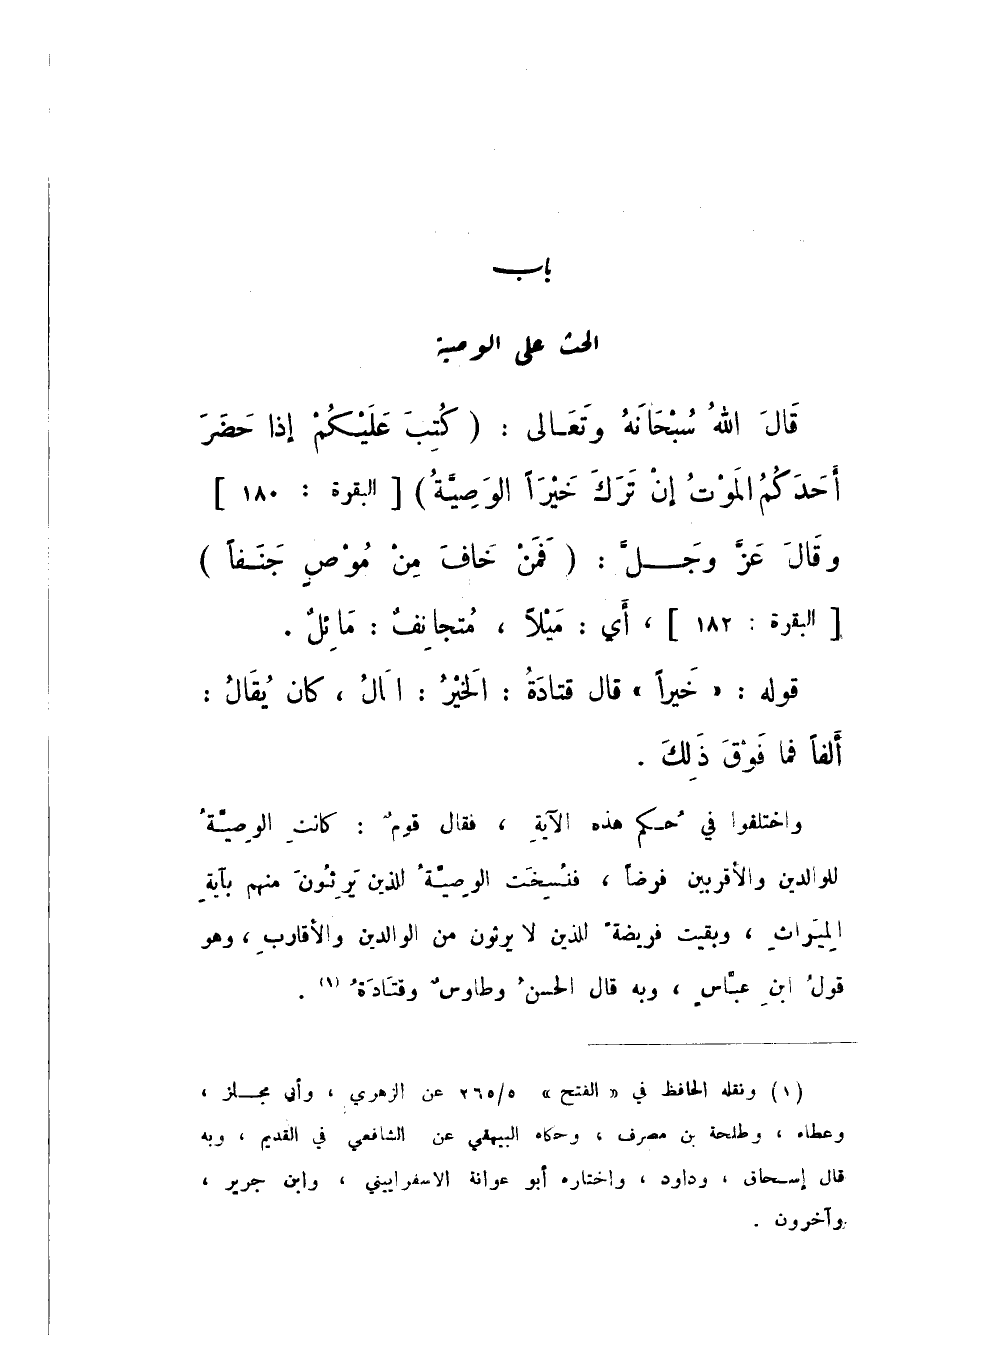 باب
الحث على الوصية
قَالَ اللهُ سُبْحَانَهُ وتَعَالى : ( كُتِبَ عَلَيْكُمْ إذا حَضَرَ
أَحَدَكُمُ المَوْتُ إنْ تَرَكَ خَيْرَاً الوَصِيَّةُ ) [ البقرة : ١٨٠ ]
وقَالَ عَزَّ وجَلَّ : ( فَمَنْ خَافَ مِنْ مُوْصٍ جَنَفاً )
[ البقرة : ١٨٢ ] ، أَي : مَيْلاً ، مُتجانِفٌ : مَائِلٌ .
قوله : « خَيراً » قال قتادَةُ : الخَيْرُ : المالُ ، كان يُقَالُ :
أَلفاً فما فَوْقَ ذَلِكَ .
واختلفوا في حُكم هذه الآيةِ ، فقال قومٌ : كانتِ الوصيَّةُ
للوالدين والأقربين فرضاً ، فنُسِخَت الوصيَّةُ للذين يَرِثُونَ منهم بآيةِ
المِيَراثِ ، وبقيت فريضةً للذين لا يرثون من الوالدين والأقاربِ ، وهو
قولُ ابنِ عبَّاسٍ ، وبه قال الحسنُ وطاوسٌ وقتَادَةُ (١) .
(١) ونقله الحافظ في « الفتح » ٢٦٥/٥ عن الزهري ، وأبي مجلز ،
وعطاء ، وطلحة بن مصرف ، وحكاه البيهقي عن الشافعي في القديم ، وبه
قال إسحاق ، وداود ، واختاره أبو عوانة الاسفراييني ، وابن جرير ،
وآخرون .